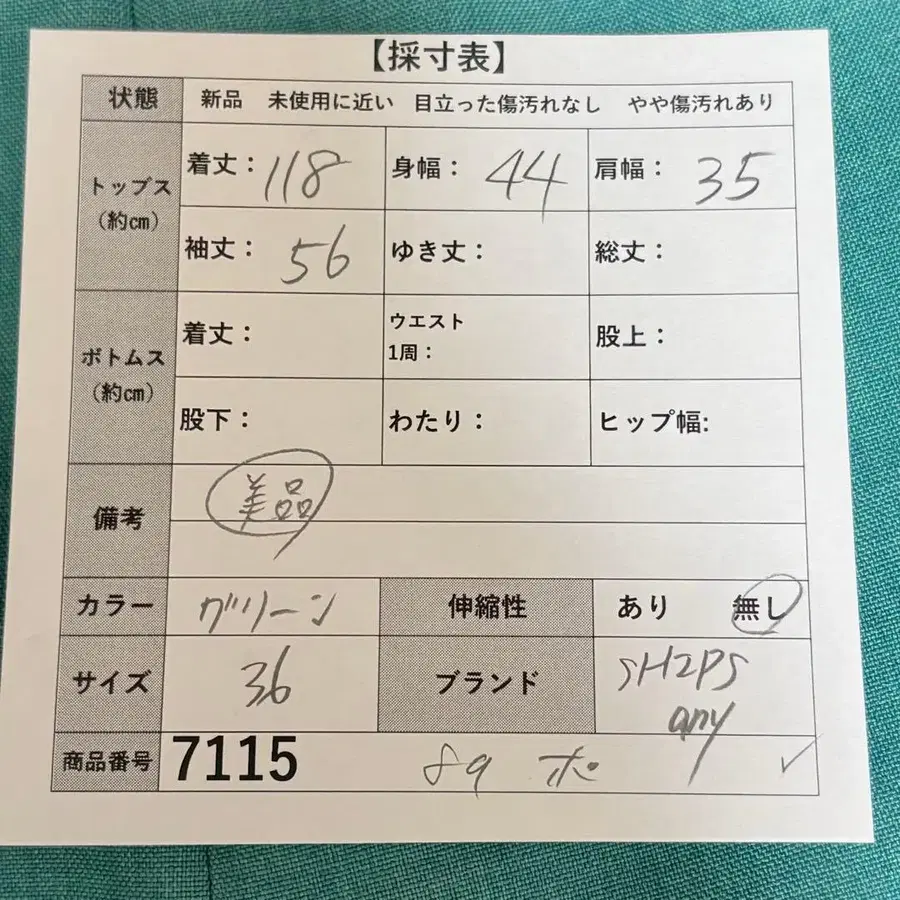 【採寸表】
状態 新品 未使用に近い 目立った傷汚れなし やや傷汚れあり
トップス
(約㎝)
着丈：118 身幅：44 肩幅：35
袖丈：56 ゆき丈： 総丈：
ボトムス
(約㎝)
着丈： ウエスト
1周： 股上：
股下： わたり： ヒップ幅:
備考 美品
カラー グリーン 伸縮性 あり 無し
サイズ 36 ブランド SHIPS
any
商品番号 7115 89 ポ